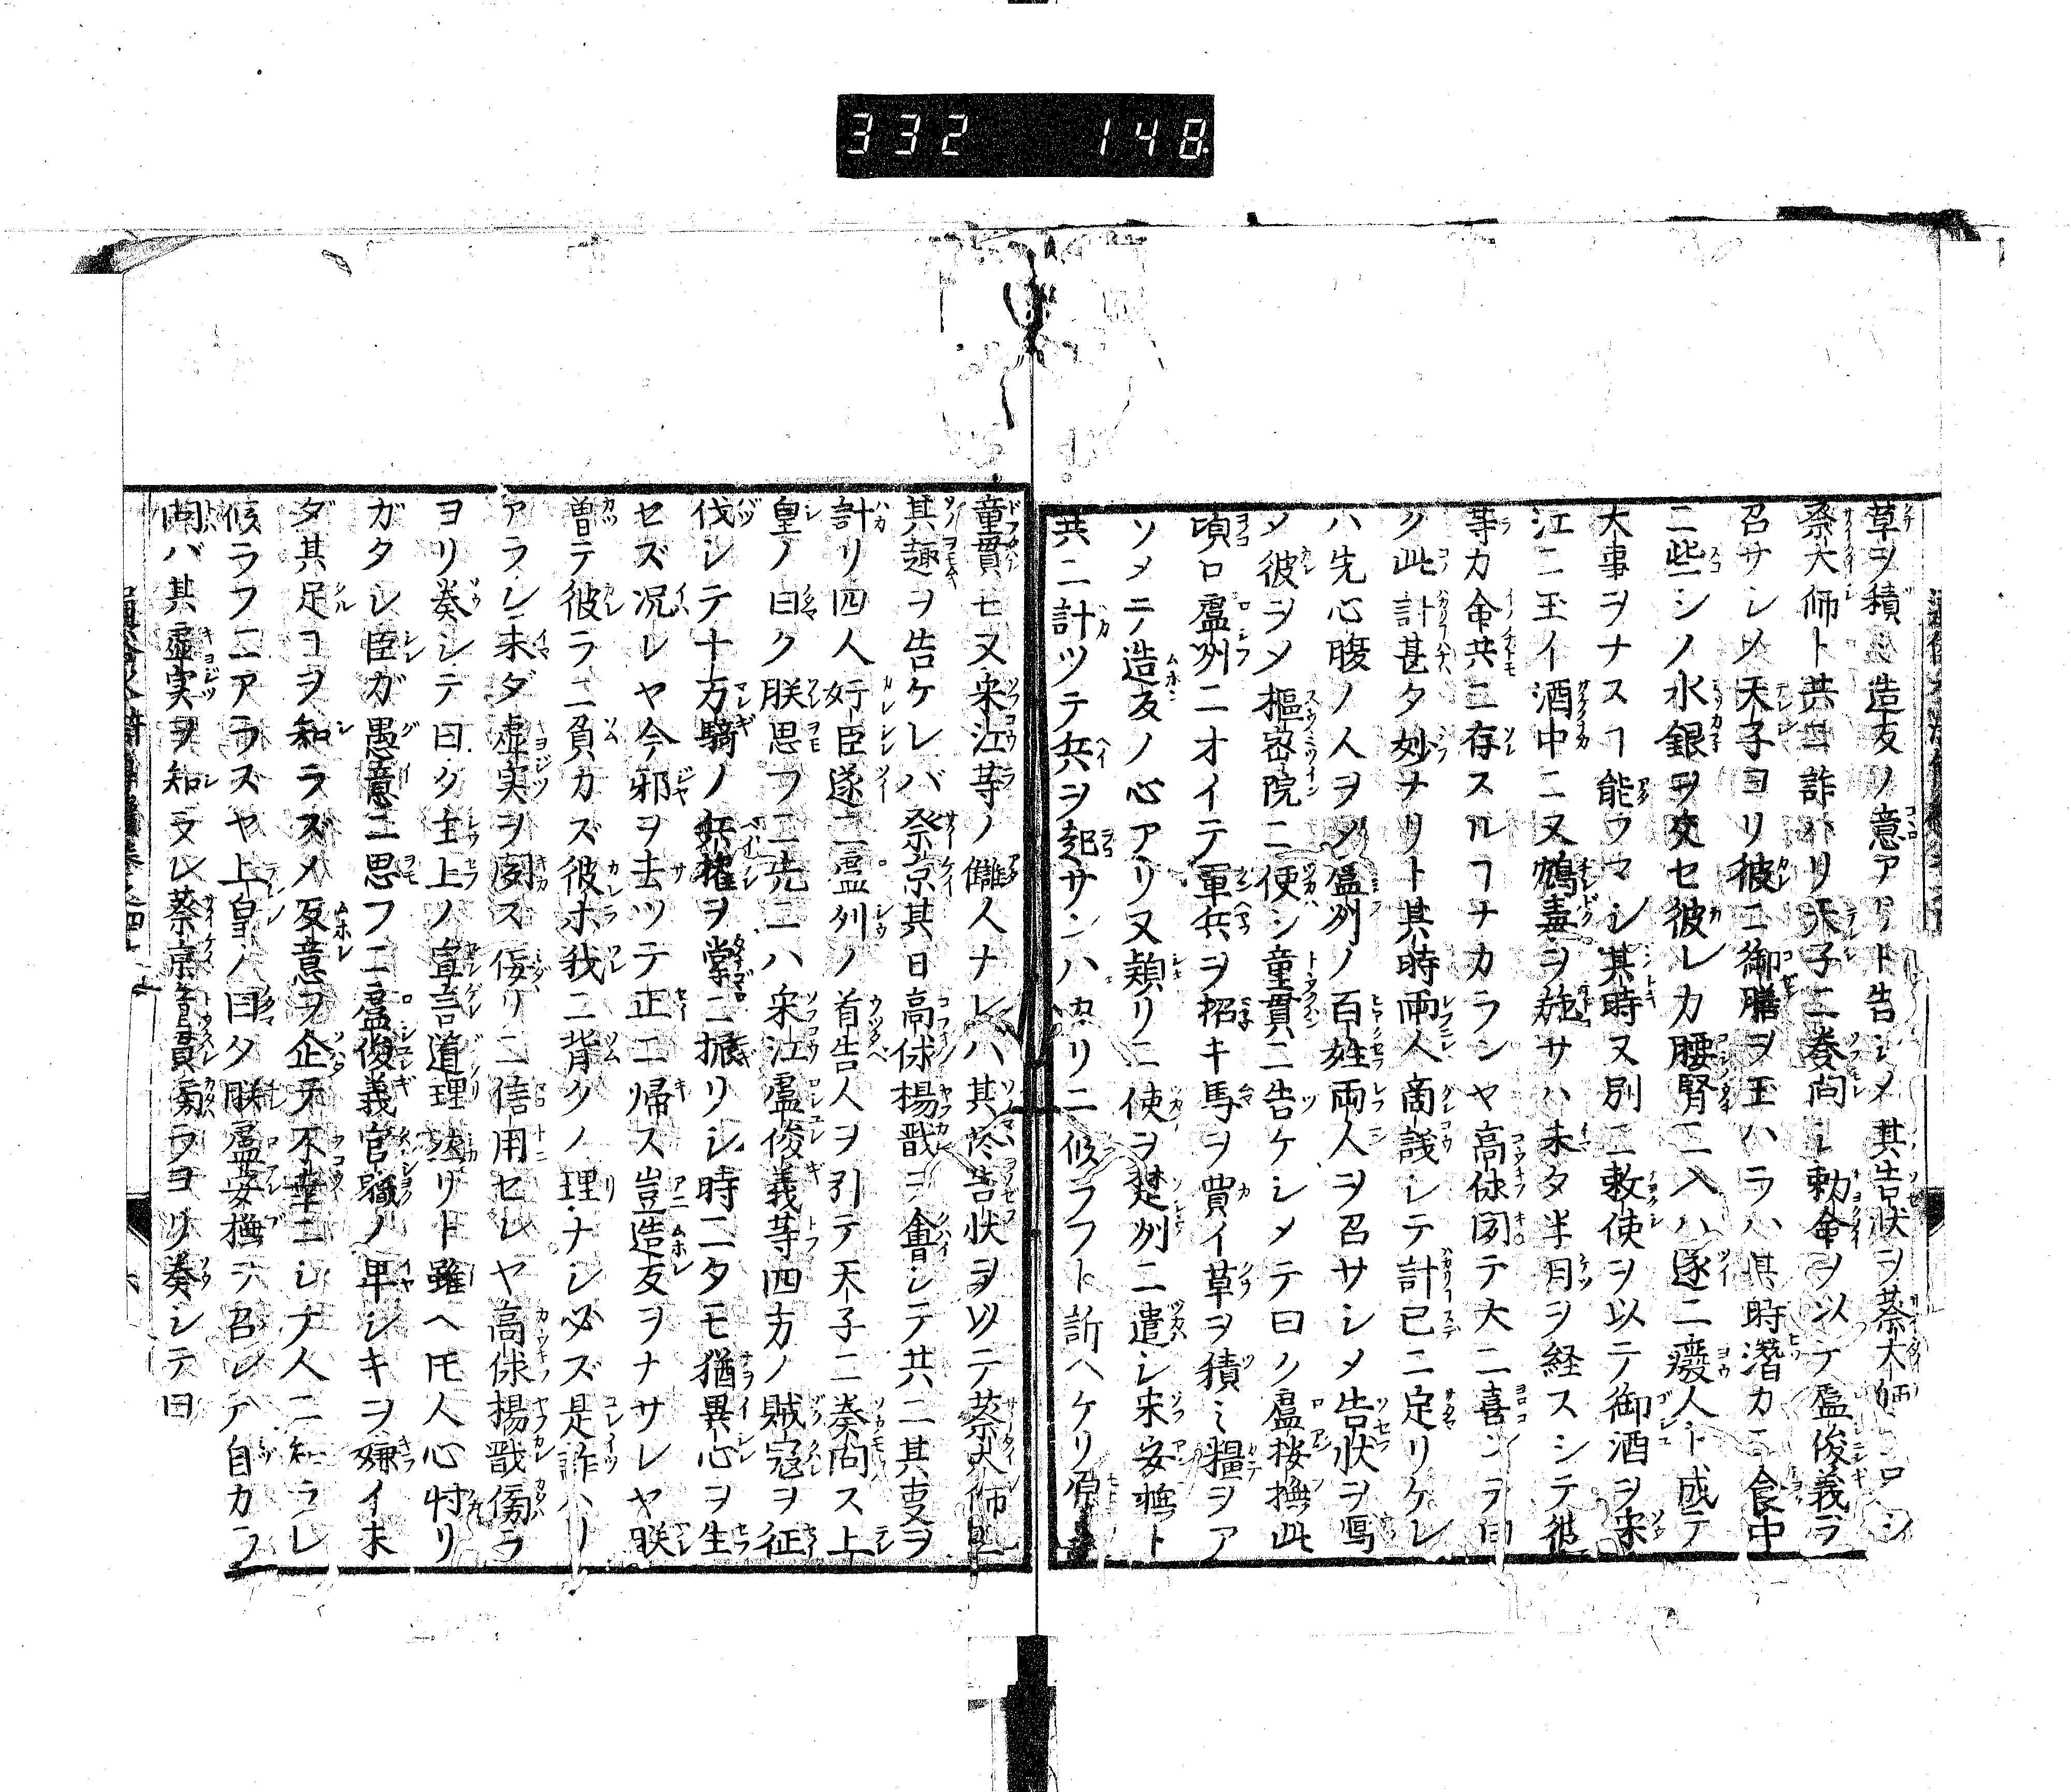 332 148
草ヲ積ミ造反ノ意アリト告シメ其告状ヲ蔡太師ニロシ
蔡大師ト共ニ詐ハリ天子ニ奏問シ勅命ヲ以テ盧俊義ヲ
召サシメ天子ヨリ彼ニ御膳ヲ玉ハラハ其時潜カニ食中
ニ些シノ水銀ヲ交セ彼レカ腰腎ニ入ハ遂ニ癈人ト成テ
大事ヲナスヿ能フマシ其時又別ニ敕使ヲ以テ御酒ヲ宋
江ニ玉イ酒中ニ又鴆毒ヲ施サハ未タ半月ヲ経スシテ彼
等カ命共ニ存スルヿナカラシヤ高俅聞テ大ニ喜ンテ曰
ク此計甚タ妙ナリト其時両人商議シテ計已ニ定リケレ
ハ先心腹ノ人ヲシ盧州ノ百姓両人ヲ召サシメ告状ヲ寫
メ彼ヲメ樞密院ニ使シ童貫ニ告ケシメテ曰ク盧按撫此
頃ロ盧州ニオイテ軍兵ヲ招キ馬ヲ買イ草ヲ積ミ糧ヲア
ソメニテ造反ノ心アリ又頻リニ使ヲ楚州ニ遣シ宋安撫ト
共ニ計ツテ兵ヲ起サンハカリニ候ラフト訴ヘケリ原
童貫モ又宋江等ノ讎人ナレハ其告状ヲ以テ蔡太師
其趣ヲ告ケレバ蔡京其日高俅楊戩ヲ會シテ共ニ其叓ヲ
計リ四人奸臣遂ニ盧州ノ首告人ヲ引テ天子ニ奏問ス上
皇ノ曰ク朕思フニ先ニハ宋江盧俊義等四方ノ賊寇ヲ征
伐シテ十万騎ノ兵權ヲ掌ニ振リシ時ニタモ猶異心ヲ生
セズ况レヤ今邪ヲ去ツテ正ニ帰ス豈造反ヲナサレヤ朕
曽テ彼ラニ負カズ彼ホ我ニ背クノ理ナシ必ズ是詐ハリ
アラシ未ダ虚実ヲ聞ス侫リニ信用セレヤ高俅楊戩傍ラ
ヨリ奏シテ曰ク主上ノ宣言道理然リト雖ヘ𪜈人心忖リ
ガタシ臣ガ愚意ニ思フニ盧俊義官職ノ卑シキヲ嫌イ未
ダ其足ヿヲ知ラズメ反意ヲ企テ不幸ニシテ人ニ知ラレ
候ラフニアラズヤ上皇ノ曰ク朕盧安撫ヲ召レテ自カラ
問バ其虚実ヲ知ラレ蔡京童貫傍ラヨリ奏シテ曰